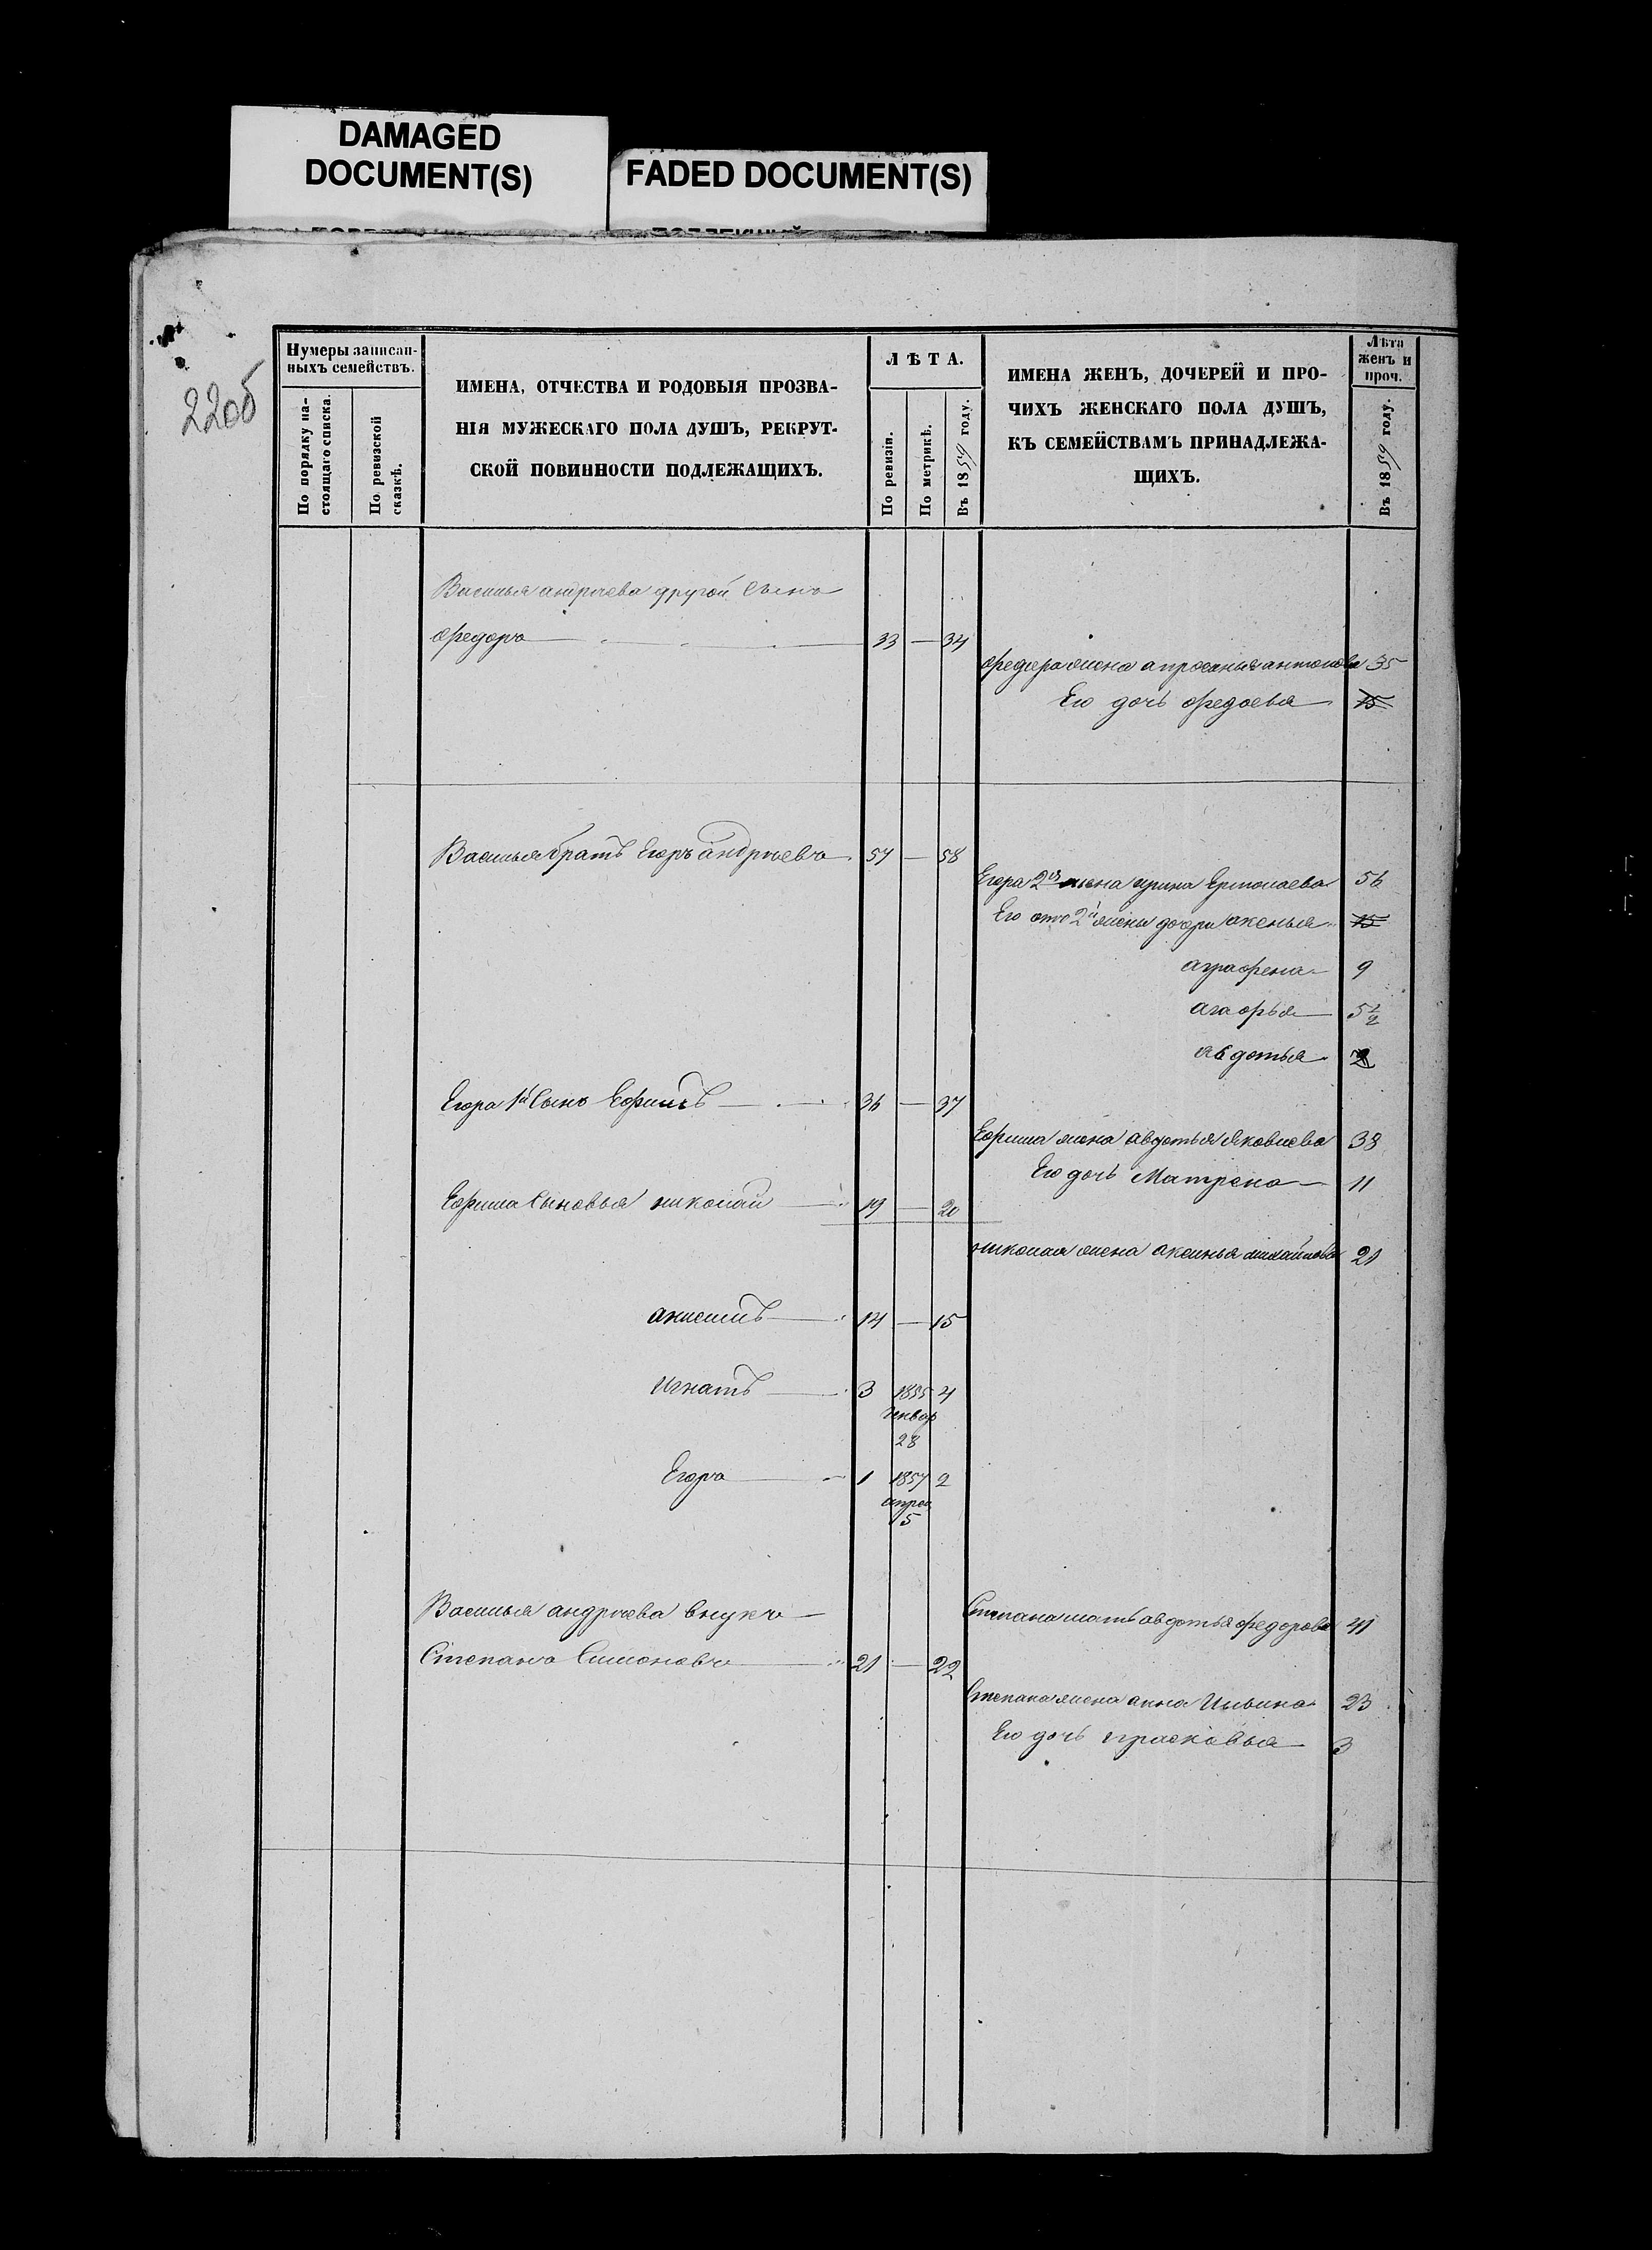 DAMAGED
DOCUMENT(S)
FADED DOCUMENT(S)
22об
Нумеры записан-
ныхъ семействъ.
По порядку на-
стоящаго списка.
По ревизской
сказкѣ.
ИМЕНА, ОТЧЕСТВА И РОДОВЫЯ ПРОЗВА-
НІЯ МУЖЕСКАГО ПОЛА ДУШЪ, РЕКРУТ-
СКОЙ ПОВИННОСТИ ПОДЛЕЖАЩИХЪ.
ЛѢТА.
По ревизіи.
По метрикѣ.
Въ 1859 году.
ИМЕНА ЖЕНЪ, ДОЧЕРЕЙ И ПРО-
ЧИХЪ ЖЕНСКАГО ПОЛА ДУШЪ,
КЪ СЕМЕЙСТВАМЪ ПРИНАДЛЕЖА-
ЩИХЪ.
Лѣта
женъ и
проч.
Въ 1859 году.
Василья андреева другой сынъ
Федоръ — 33 — 34
Федора жена апросинья антонова 35
Его дочь Федосья 15
Василья братъ Егоръ андреевъ 57 — 58
Егора 2я жена ирина Ермолаева 56
Его отъ 2й жены дочери аксенья 15
аграфена 9
агафья 5 1/2
авдотья 2
Егора 1й сынъ Ефимъ — 36 — 37
Ефима жена авдотья Яковлева 38
Его дочь Матрена 11
Ефима сыновья николай — 19 — 20
николая жена аксинья михайлова 21
анисимъ — 14 — 15
Игнатъ — 3 1855 4
Январ
28
Егоръ — 1 1857 2
апрел
15
Василья андреева внукъ
Степана мать авдотья федорова 41
Степанъ Симоновъ — 21 — 22
Степана жена анна Ильина 23
Его дочь прасковья 3